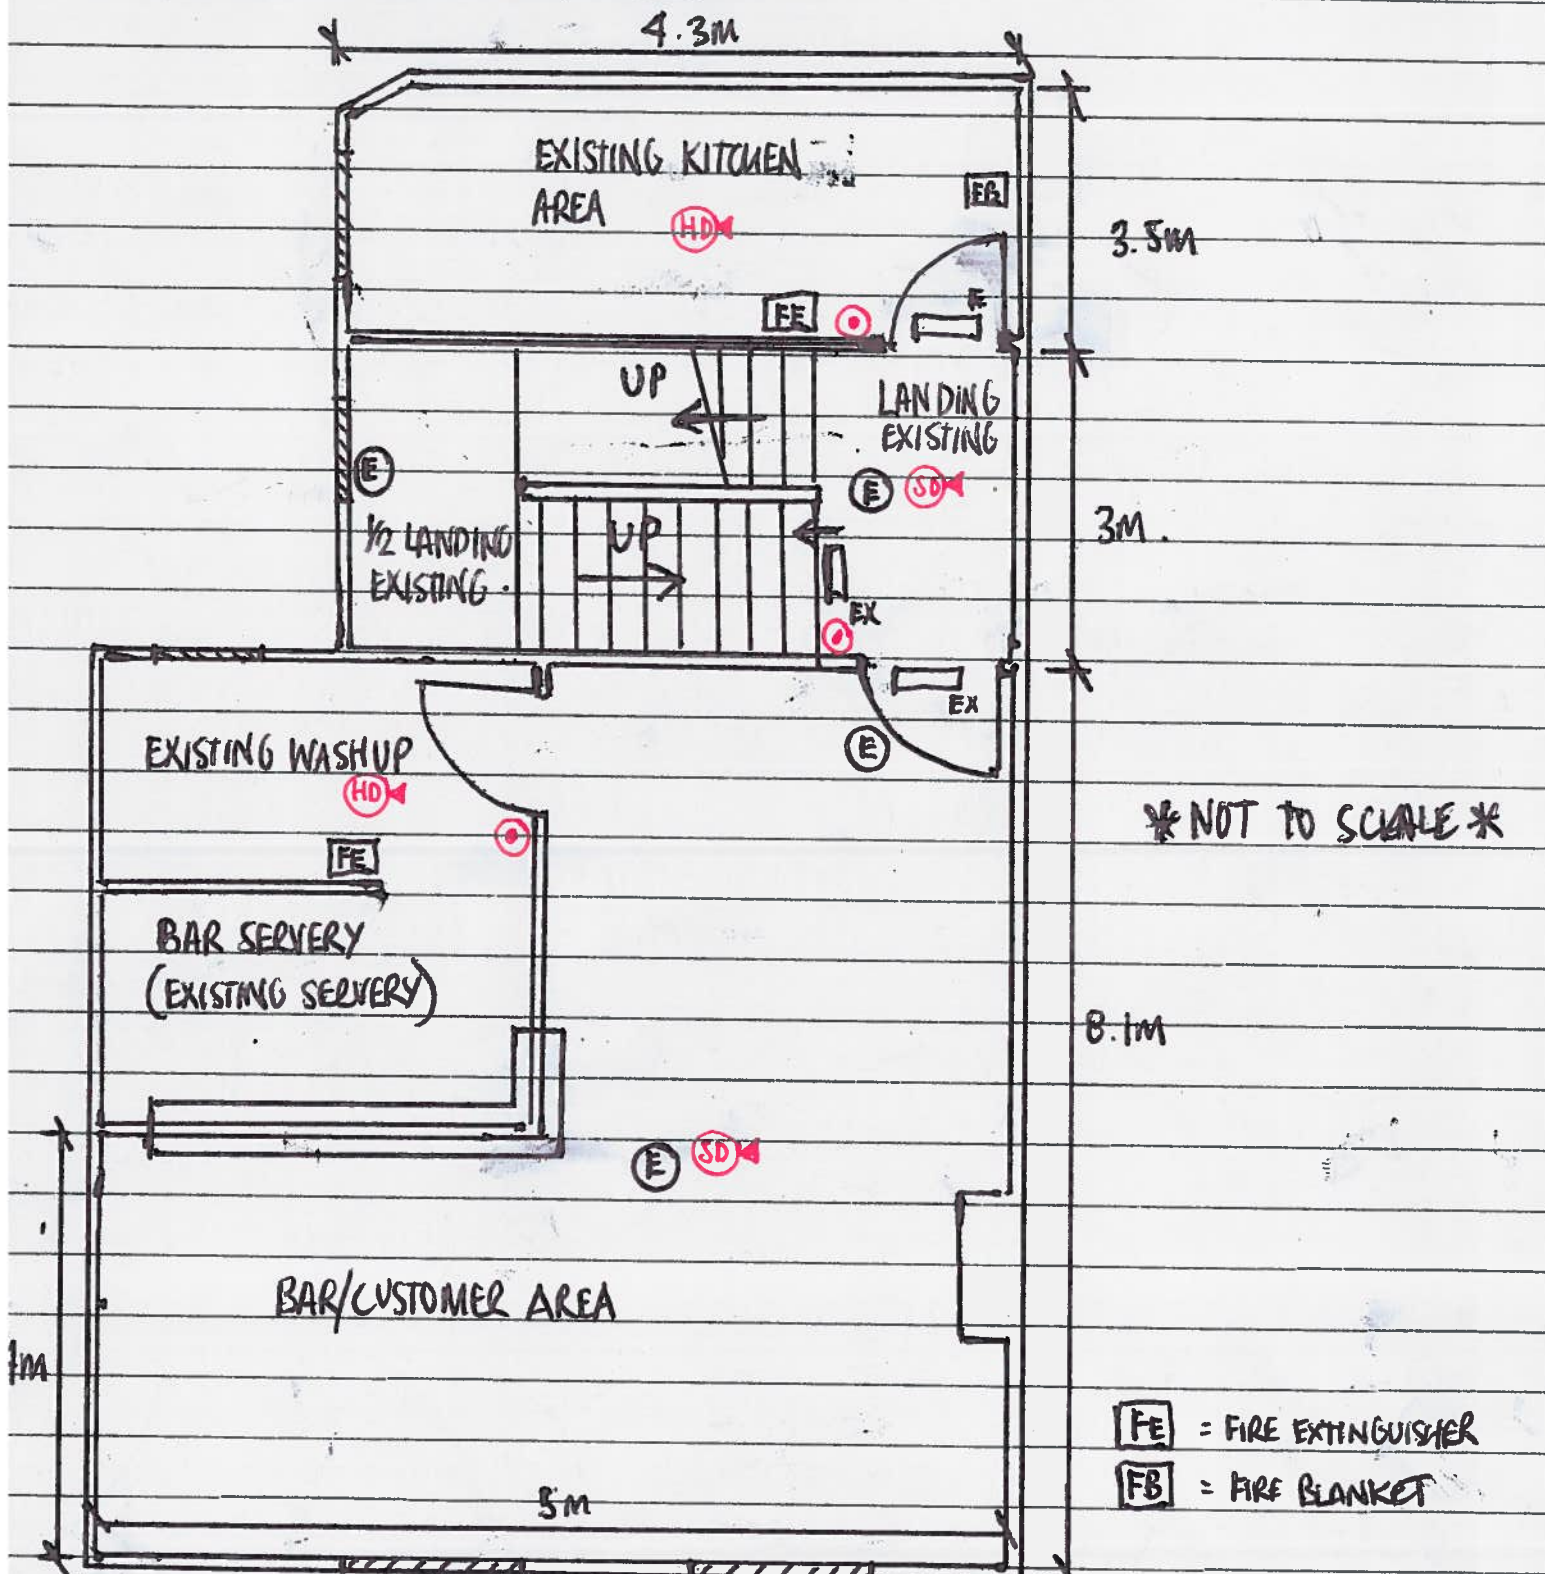 4.3M
EXISTING KITCHEN
AREA
FB
HD
3.5M
FE
E
UP
LANDING
EXISTING
E
E
SD
1/2 LANDING
EXISTING.
UP
3M.
EX
EX
E
EXISTING WASHUP
HD
* NOT TO SCALE *
FE
BAR SERVERY
(EXISTING SERVERY)
8.1M
E
SD
BAR/CUSTOMER AREA
FE = FIRE EXTINGUISHER
FB = FIRE BLANKET
5M